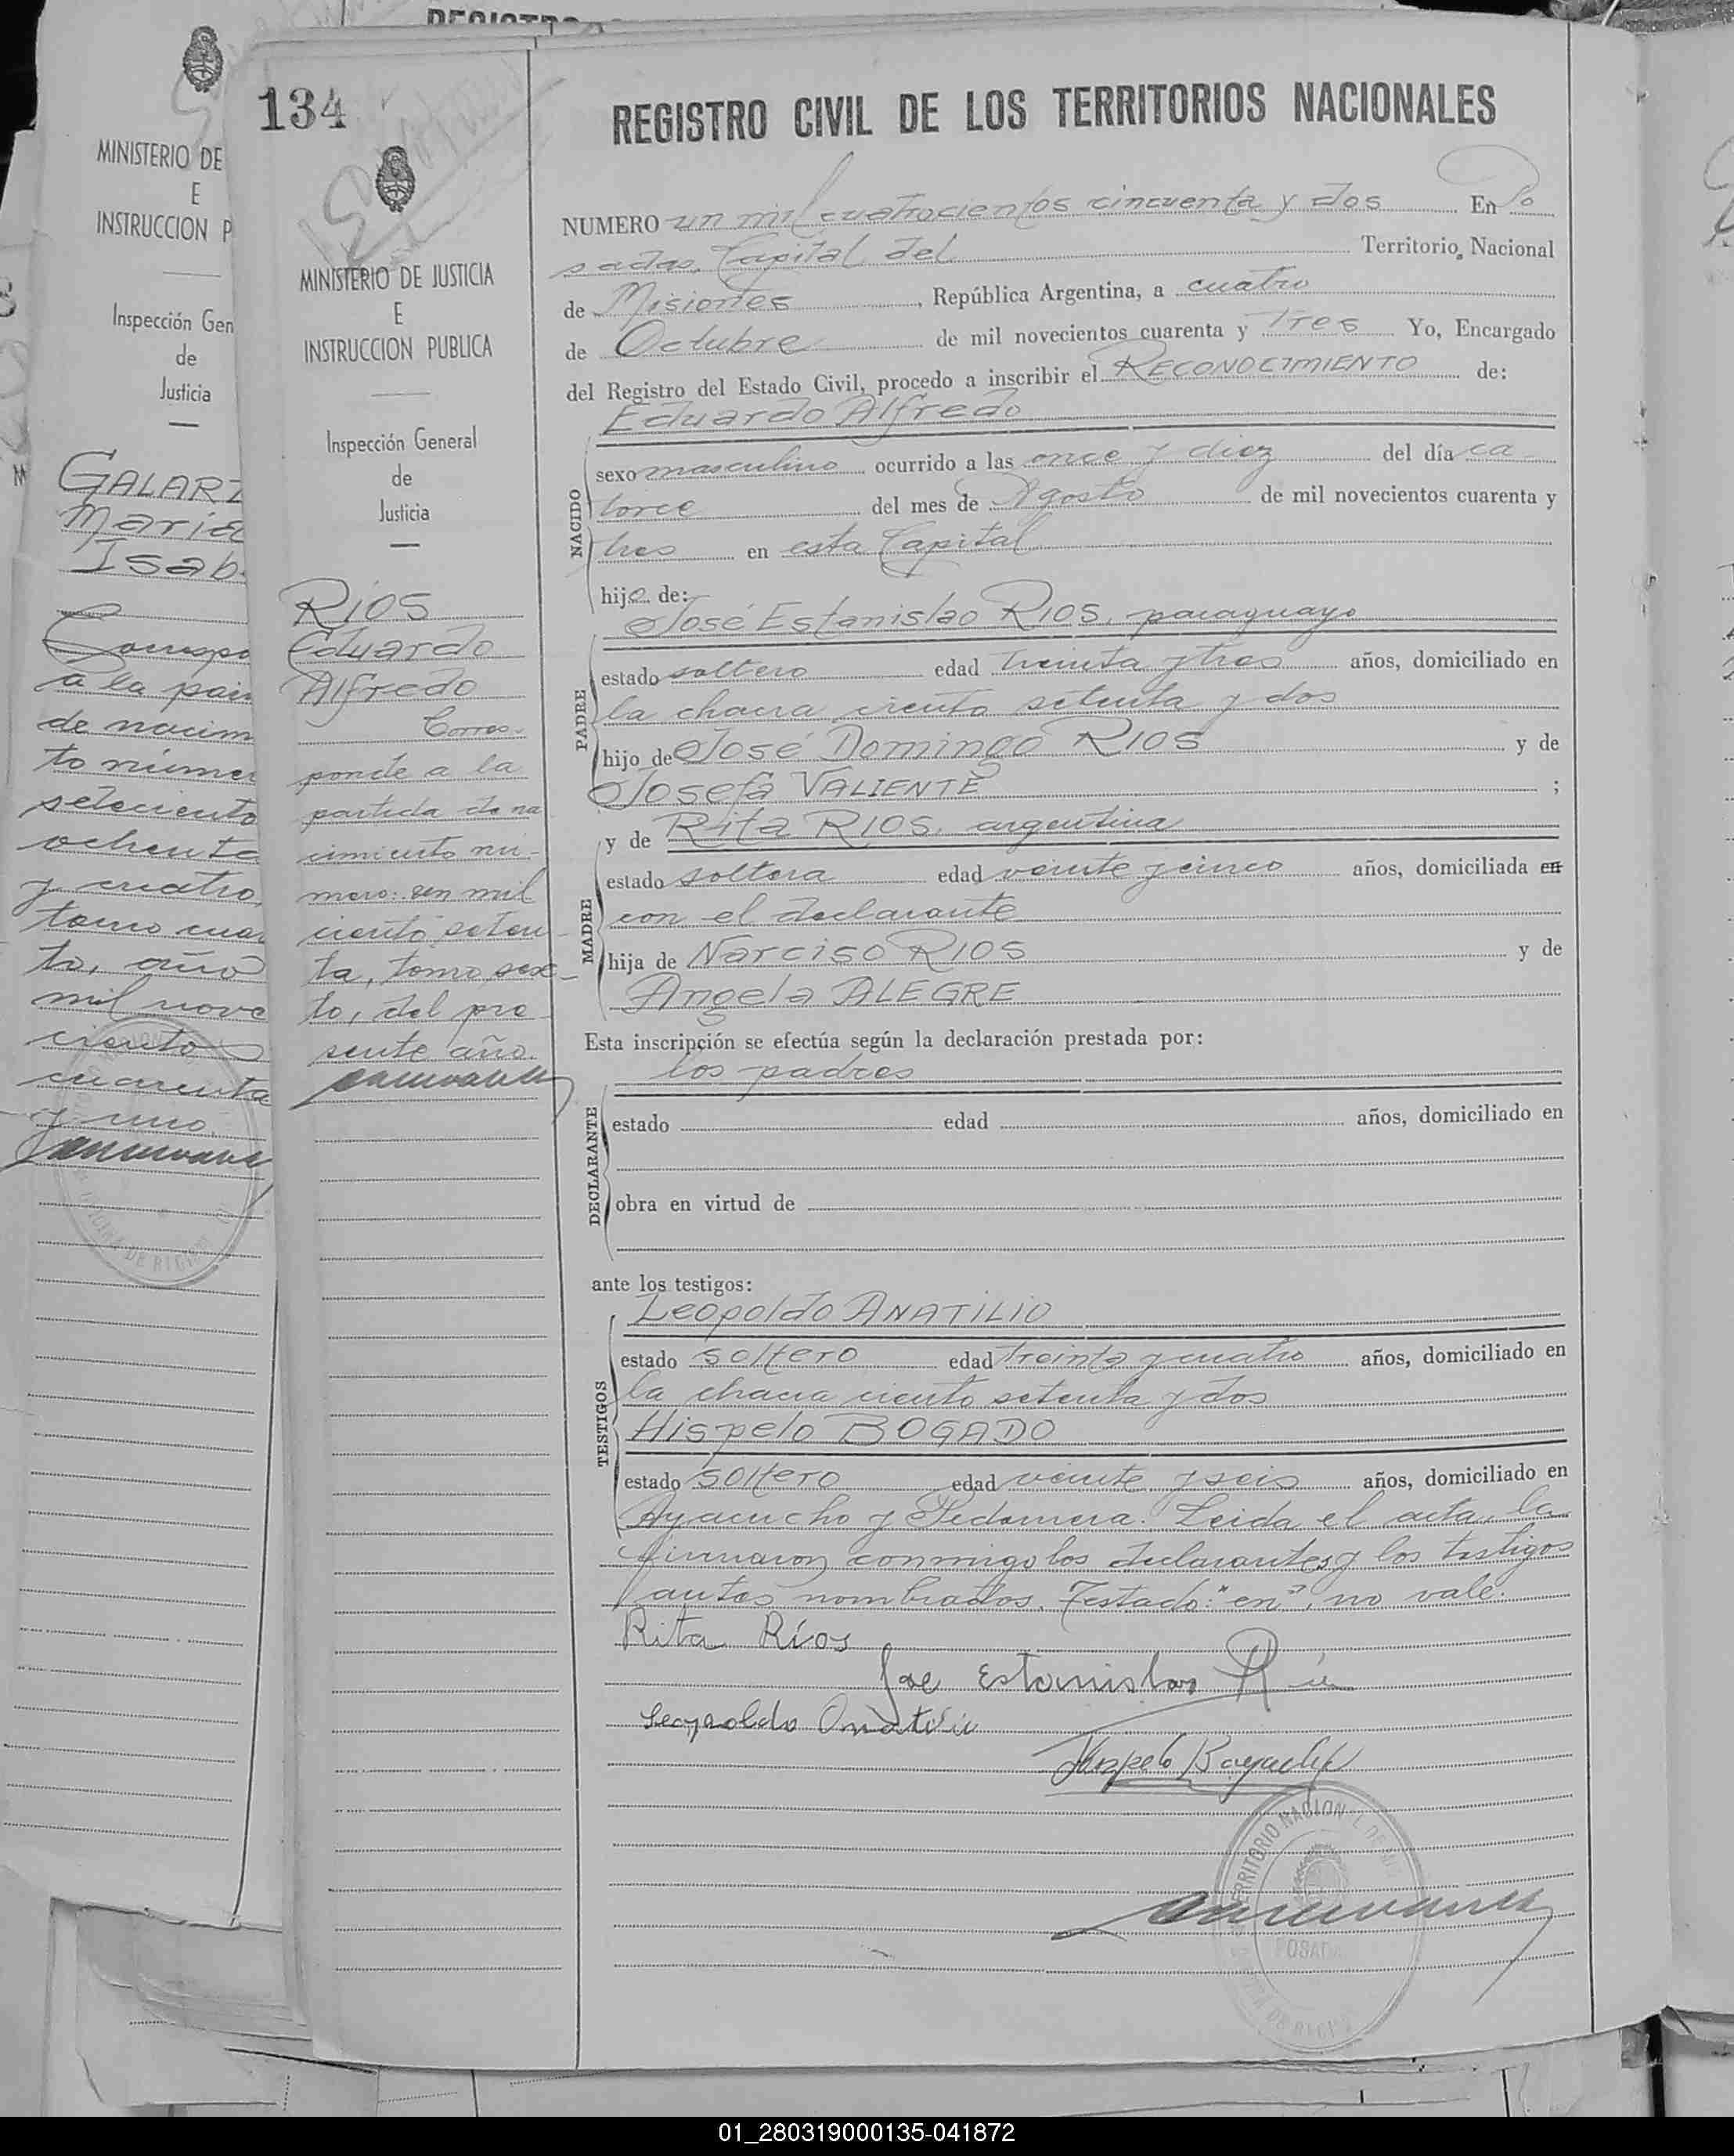 REGISTRO
MINISTERIO DE
E
INSTRUCCION P
Inspección Gen
de
Justicia
GALARZ
Maria
Isab
Correspo
a la par
de nacim
to númer
seteciento
ochenta
y cuatro,
tomo cuar
to, año
mil nove
ciento
cuarenta
y uno.
134
MINISTERIO DE JUSTICIA
E
INSTRUCCION PUBLICA
Inspección General
de
Justicia
RIOS
Eduardo
Alfredo
Corres-
ponde a la
partida de na
cimiento nú-
mero: un mil
ciento seten-
ta, tomo sex-
to, del pre-
sente año.
REGISTRO CIVIL DE LOS TERRITORIOS NACIONALES
NUMERO un mil cuatrocientos cincuenta y dos En Po
sadas, Capital del Territorio Nacional
de Misiones, República Argentina, a cuatro
de Octubre de mil novecientos cuarenta y tres Yo, Encargado
del Registro del Estado Civil, procedo a inscribir el RECONOCIMIENTO de:
Eduardo Alfredo
NACIDO
sexo masculino ocurrido a las once y diez del día ca-
torce del mes de Agosto de mil novecientos cuarenta y
tres en esta Capital
hijo de:
José Estanislao RIOS, paraguayo
PADRE
estado soltero edad treinta y tres años, domiciliado en
la chacra ciento setenta y dos
hijo de José Domingo RIOS y de
Josefa VALIENTE ;
y de Rita RIOS, argentina
MADRE
estado soltera edad veinte y cinco años, domiciliada en
con el declarante
hija de Narciso RIOS y de
Angela ALEGRE
Esta inscripción se efectúa según la declaración prestada por:
los padres
DECLARANTE
estado edad años, domiciliado en
obra en virtud de
ante los testigos:
Leopoldo ANATILIO
TESTIGOS
estado soltero edad treinta y cuatro años, domiciliado en
la chacra ciento setenta y dos
Hispelo BOGADO
estado soltero edad veinte y seis años, domiciliado en
Ayacucho y Pedernera. Leida el acta, la
firmaron conmigo los declarantes y los testigos
antes nombrados. Testado: "en", no vale.
Rita Ríos
Jose Estanislao
Leopoldo
Hispelo
TERRITORIO NACION
POSADA
01_280319000135-041872